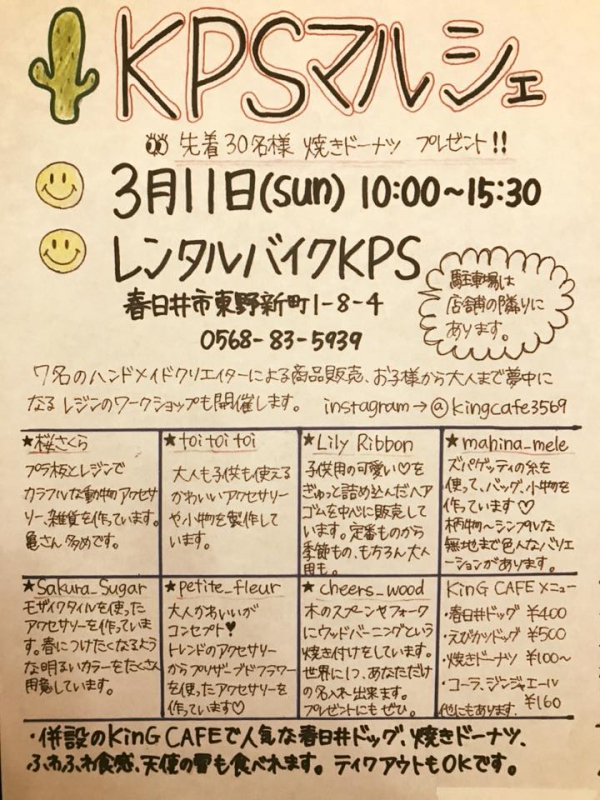 KPSマルシェ
先着30名様 焼きドーナツ プレゼント!!
3月11日(sun) 10:00~15:30
レンタルバイクKPS
春日井市東野新町1-8-4
0568-83-5939
駐車場は
店舗の隣りに
あります。
7名のハンドメイドクリエイターによる商品販売、お子様から大人まで夢中に
なるレジンのワークショップも開催します。 instagram→@kingcafe3569
★桜さくら
プラ板とレジンで
カラフルな動物のアクセサ
リー、雑貨を作っています。
亀さん多めです。
★toi toi toi
大人も子供も使える
かわいいアクセサリー
や小物を製作して
います。
★Lily Ribbon
子供用の可愛い♡を
ぎゅっと詰め込んだヘア
ゴムを中心に販売して
います。定番ものから
季節もの、もちろん大人
用も。
★mahina_mele
ズパゲッティの糸を
使って、バッグ、小物を
作っています♡
柄物~シンプルな
無地まで色んなバリエ
ーションがあります。
★Sakura_Sugar
モザイクタイルを使った
アクセサリーを作っていま
す。春につけたくなるよう
な明るいカラーをたくさん
用意しています。
★petite_fleur
大人かわいいが
コンセプト♥
トレンドのアクセサリー
からプリザーブドフラワー
を使ったアクセサリーを
作っています♡
★cheers_wood
木のスプーンやフォーク
にウッドバーニングという
焼き付けをしています。
世界に1つ、あなただけ
の名入れ出来ます。
プレゼントにもぜひ。
KinG CAFEメニュー
・春日井ドッグ ¥400
・えびカツドッグ ¥500
・焼きドーナツ ¥100~
・コーラ、ジンジャエール
他にもあります. ¥160
・併設のKinG CAFEで人気な春日井ドッグ、焼きドーナツ、
ふわふわ食感、天使の雪も食べれます。テイクアウトもOKです。